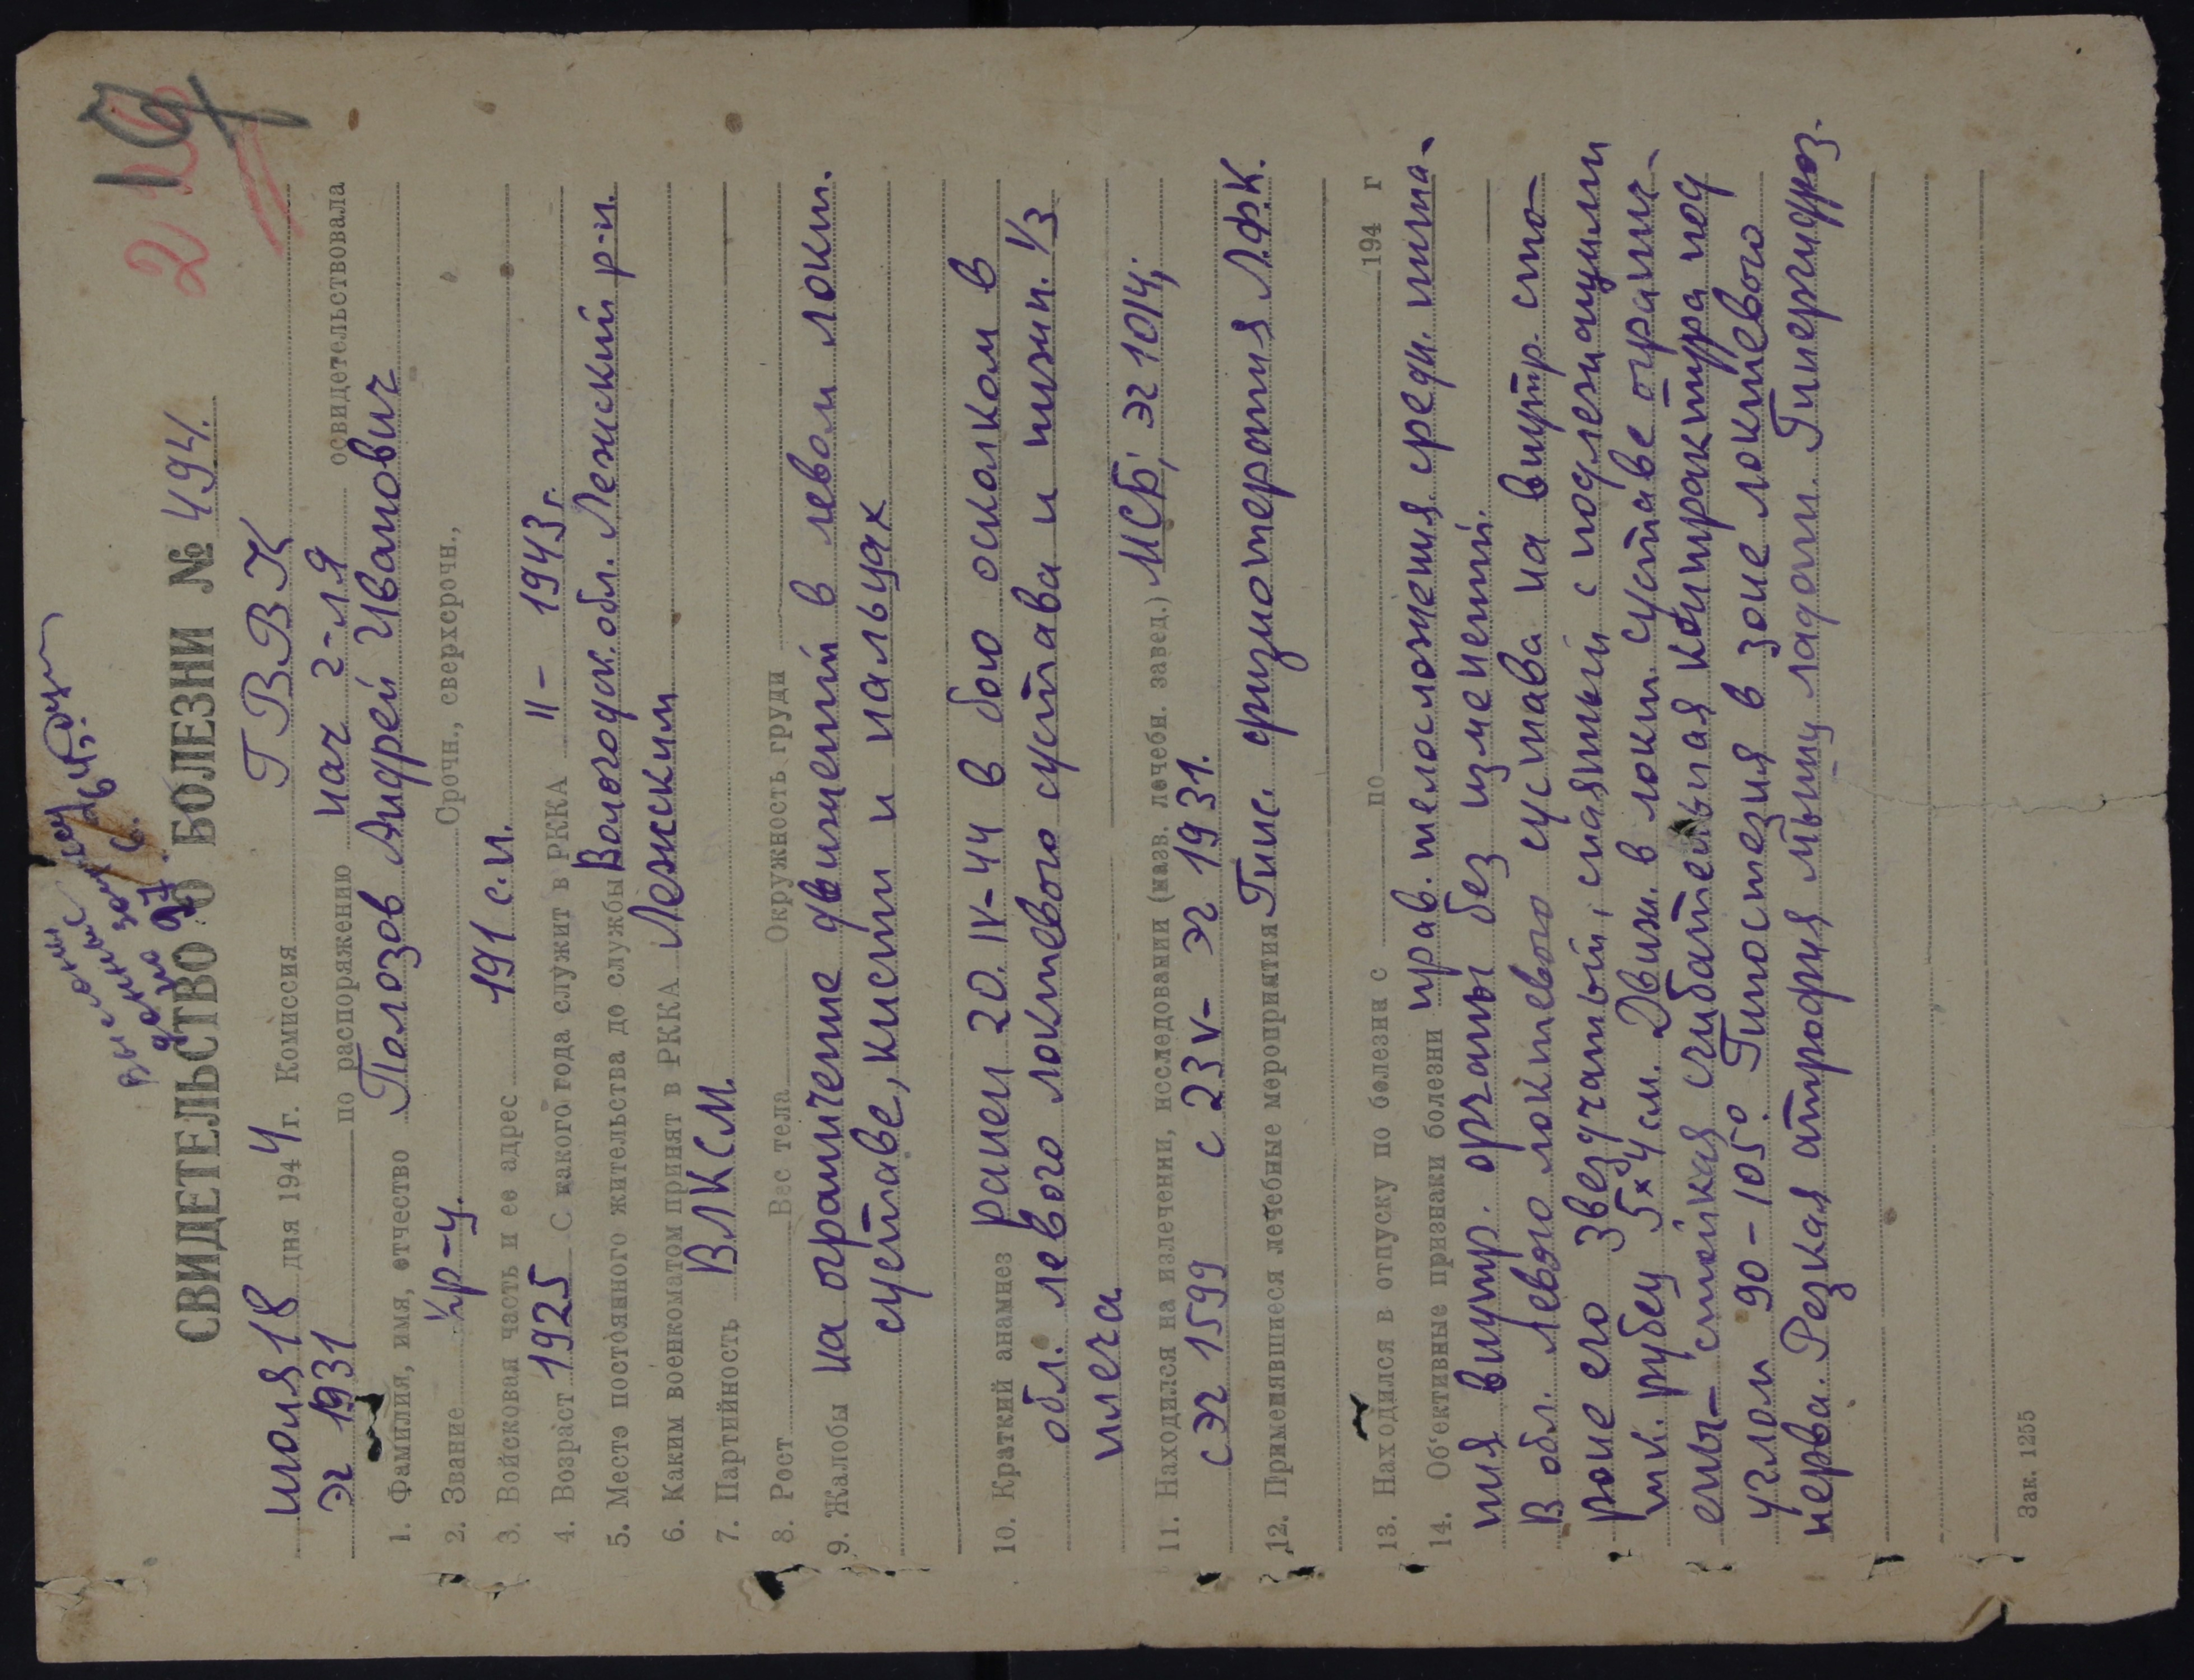 216
19
СВИДЕТЕЛЬСТВО О БОЛЕЗНИ № 494.
июля 18 дня 1944 г. Комиссия ГВВК
ЭГ 1931 по распоряжению нач г-ля освидетельствовала
1. Фамилия, имя, отчество Полозов Андрей Иванович
2. Звание кр-ц. Срочн., сверхсрочн.,
3. Войсковая часть и ее адрес 191 с.п.
4. Возраст 1925 С какого года служит в РККА II - 1943 г.
5. Место постоянного жительства до службы Вологодск. обл. Лежский р-н.
6. Каким военкоматом принят в РККА Лежским
7. Партийность ВЛКСМ
8. Рост Вес тела Окружность груди
9. Жалобы на ограничение движений в левом локт.
суставе, кисти и пальцах
10. Краткий анамнез ранен 20.IV-44 в бою осколком в
обл. левого локтевого сустава и нижн. 1/3
плеча
11. Находился на излечении, исследовании (назв. лечебн. завед.) МСБ, ЭГ 1014;
СЭГ 1599 с 23 V - ЭГ 1931.
12. Применявшиеся лечебные мероприятия Гипс. физиотерапия Л.Ф.К.
13. Находился в отпуску по болезни с по 194 г
14. Об'ективные признаки болезни прав. телосложения средн. пита-
ния внутр. органы без изменений.
В обл. левого локтевого сустава на внутр. сто-
роне его звездчатый, спаянный с подлежащими
тк. рубец 5×4 см. Движ. в локт. суставе огранич-
ены - стойкая сгибательная контрактура под
углом 90 - 105°. Гипостезия в зоне локтевого
нерва. Резкая атрофия мышц ладони. Гипергидроз.
Зак. 1255